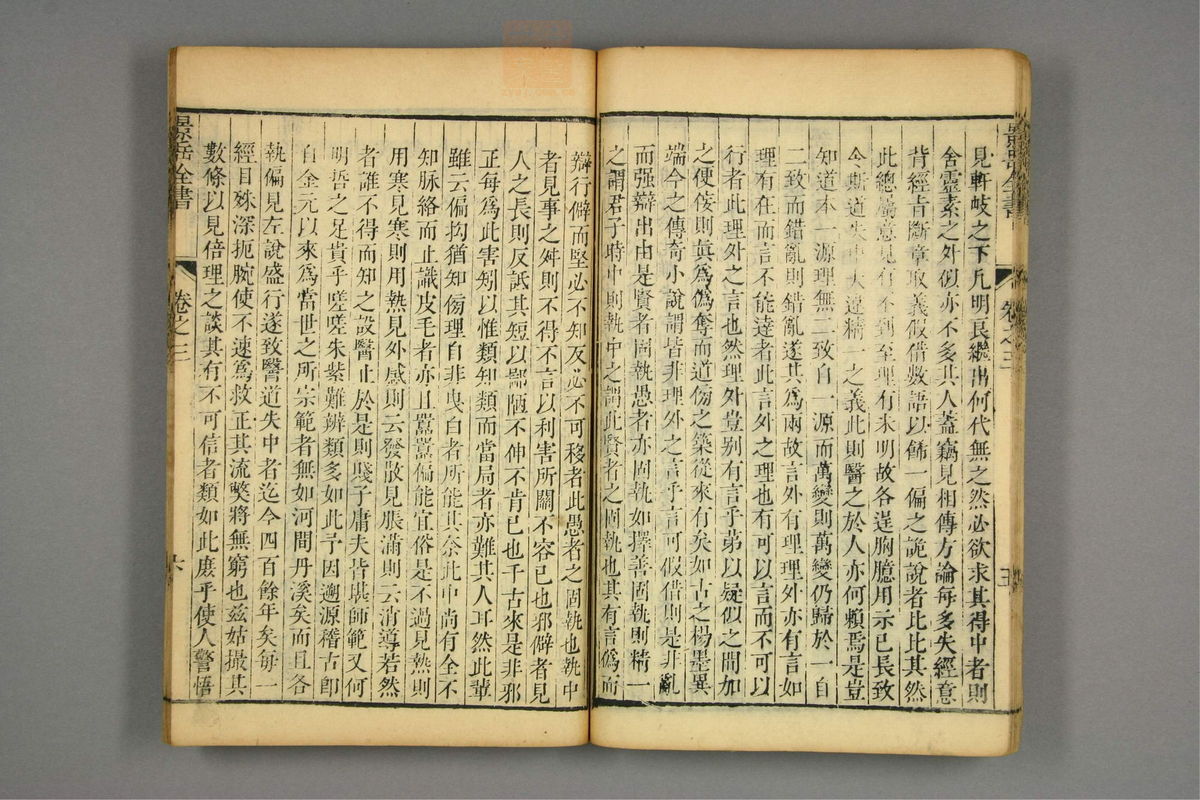 景岳全書 卷之三 五
見軒岐之下凡明良繼出何代無之然必欲求其得中者則
舍靈素之外似亦不多其人蓋竊見相傳方論每多失經意
背經旨斷章取義假借數語以飾一偏之詭說者比比其然
此總屬意見有不到至理有未明故各逞胸臆用示己長致
令斯道失中大違精一之義此則醫之於人亦何賴焉是豈
知道本一源理無二致自一源而萬變則萬變仍歸於一自
二致而錯亂則錯亂遂其爲兩故言外有理理外亦有言如
理有在而言不能達者此言外之理也有可以言而不可以
行者此理外之言也然理外豈别有言乎第以疑似之間加
之便佞則真爲偽奪而道傷之矣從來有矣如古之楊墨異
端今之傳奇小說謂皆非理外之言乎言可假借則是非亂
而强辯出由是賢者固執愚者亦固執如擇善固執則精一
之謂君子時中則執中之謂此賢者之固執也其有言偽而
辯行僻而堅必不知反必不可移者此愚者之固執也執中
者見事之舛則不得不言以利害所關不容已也邪僻者見
人之長則反詆其短以鄙陋不伸不肯已也千古來是非邪
正每爲此害矧以惟類知類而當局者亦難其人耳然此輩
雖云偏拗猶知傷理自非曳白者所能其奈此中尚有全不
知脉絡而止識皮毛者亦且囂囂偏能宜俗是不過見熱則
用寒見寒則用熱見外感則云發散見脹滿則云消導若然
者誰不得而知之設醫止於是則賤子庸夫皆堪師範又何
明哲之足貴乎嗟嗟朱紫難辨類多如此予因遡源稽古卽
自金元以來爲當世之所宗範者無如河間丹溪矣而且各
執偏見左說盛行遂致醫道失中者迄今四百餘年矣每一
經目殊深扼腕使不速爲救正其流獘將無窮也兹姑撮其
數條以見倍理之談其有不可信者類如此庶乎使人警悟
景岳全書 卷之三 六